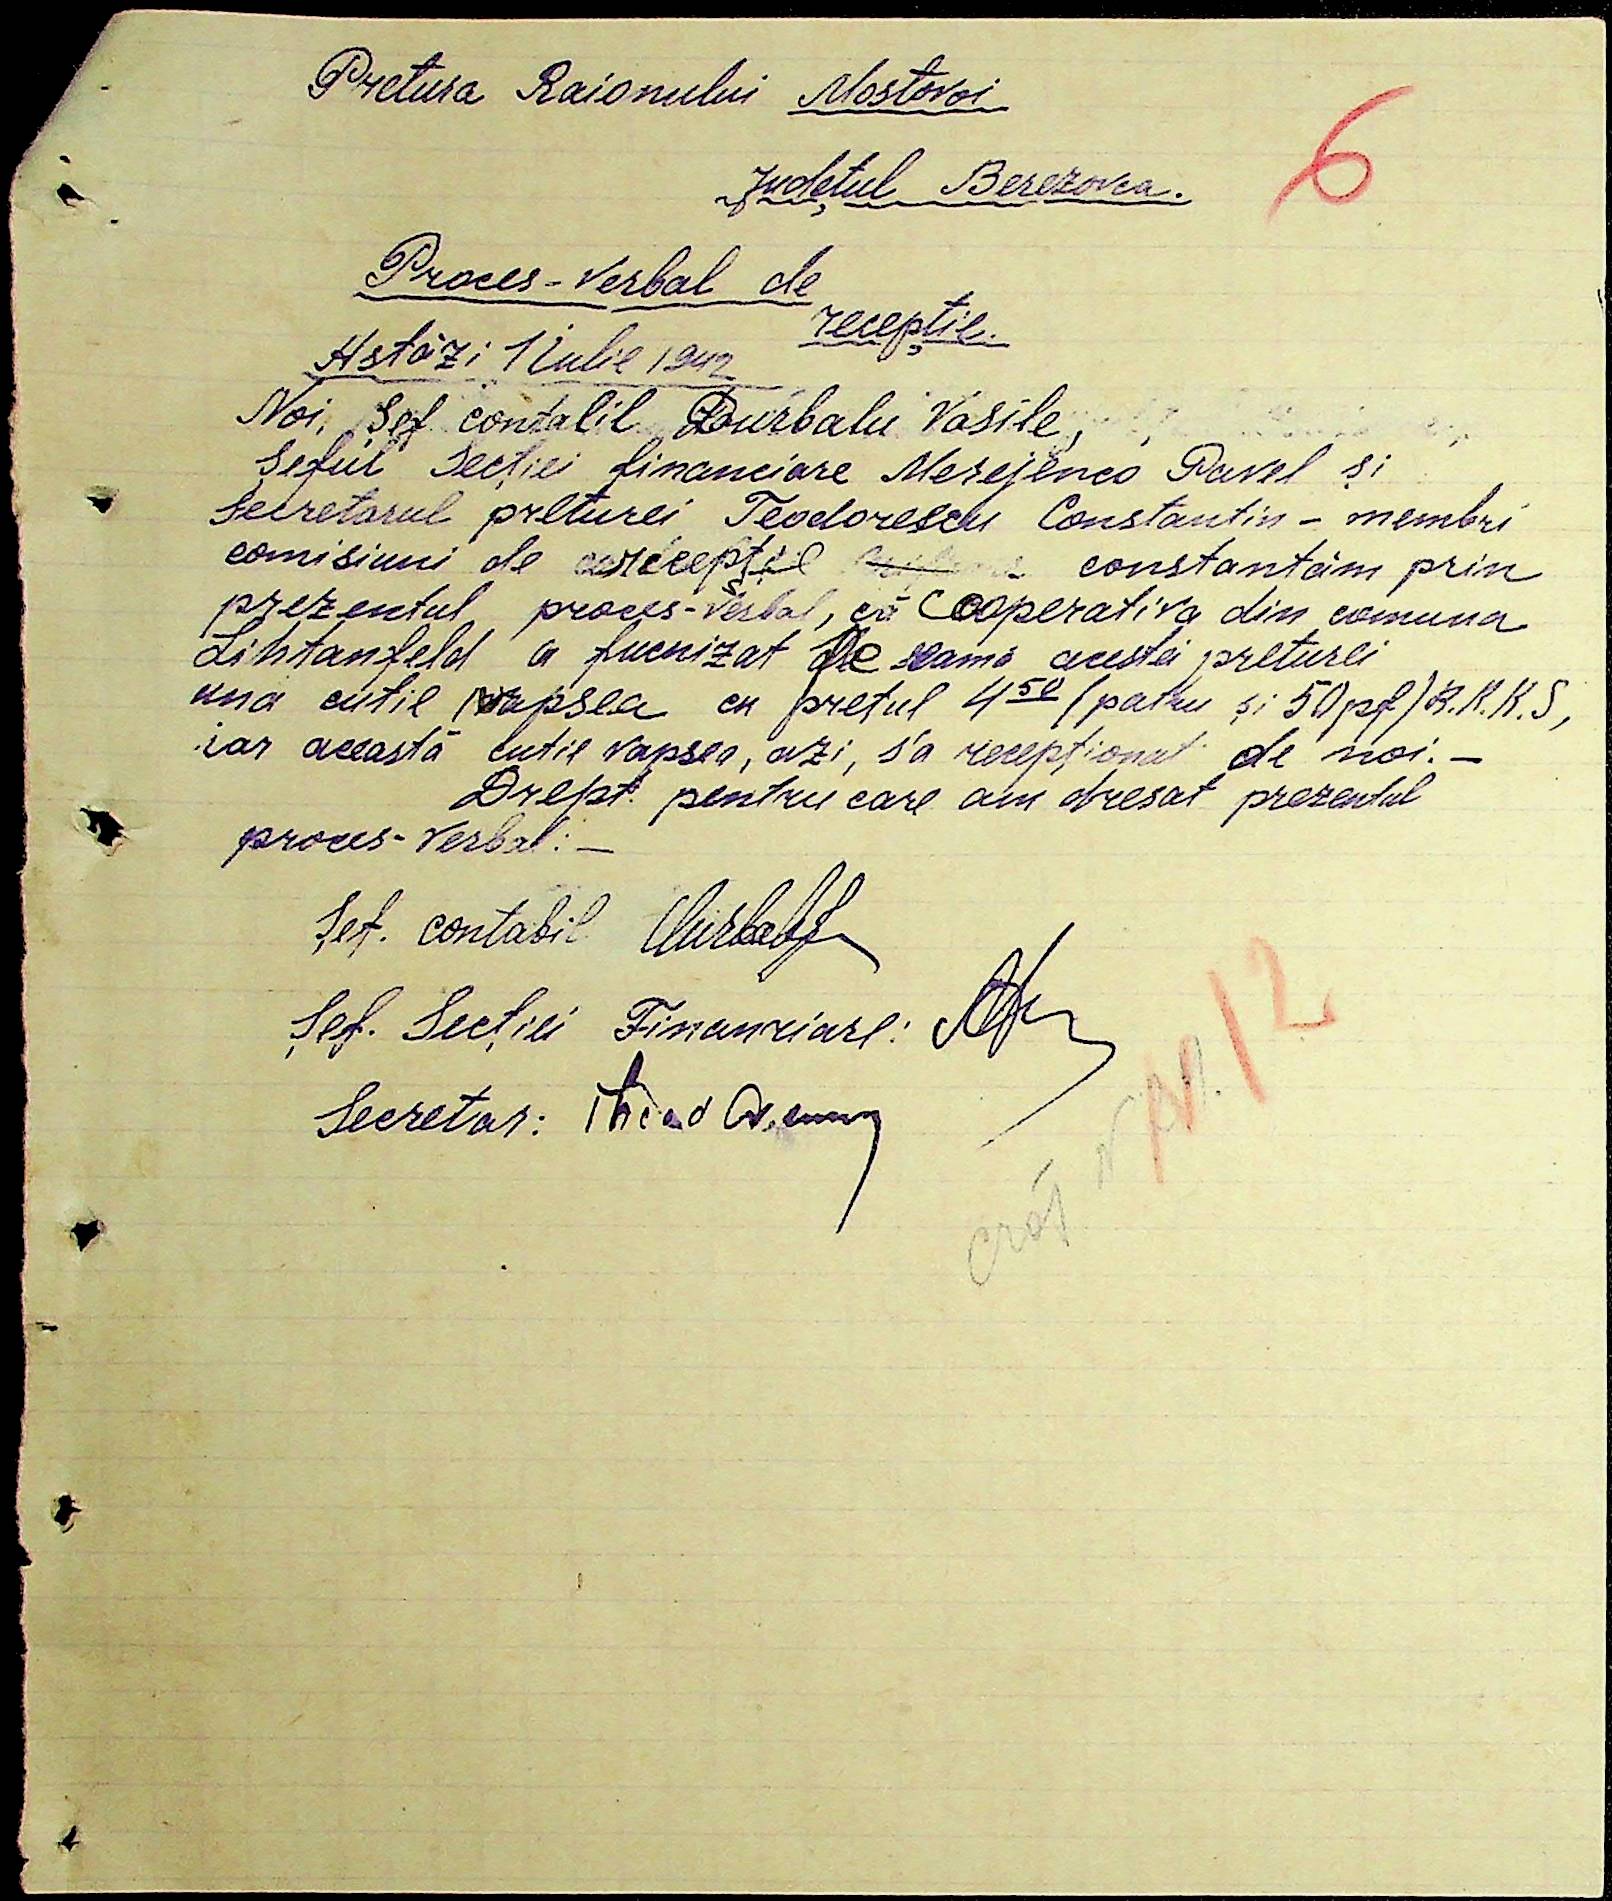 Pretura Raionului Mostovoi
6
Județul Berezovca.
Proces-Verbal de
recepție.
Astăzi 1 Iulie 1942
Noi, Șef contalil Durbalu Vasile,
Șeful Secției financiare Merejenco Pavel și
Secretarul preturei Teodorescu Constantin - membri
comisiuni de recepție constantăm prin
prezentul proces-verbal, că Cooperativa din comuna
Lihtanfeld a fucnizat pe seama acestei preturei
una cutie vapsea cu prețul 4 50 (patru și 50 pf) R.K.K.S,
iar această cutie vapsea, azi, s'a recepționat de noi. —
Drept pentru care am dresat prezentul
proces-Verbal: —
Șef. contabil
Șef. Secției Finanziare:
Secretar:
12